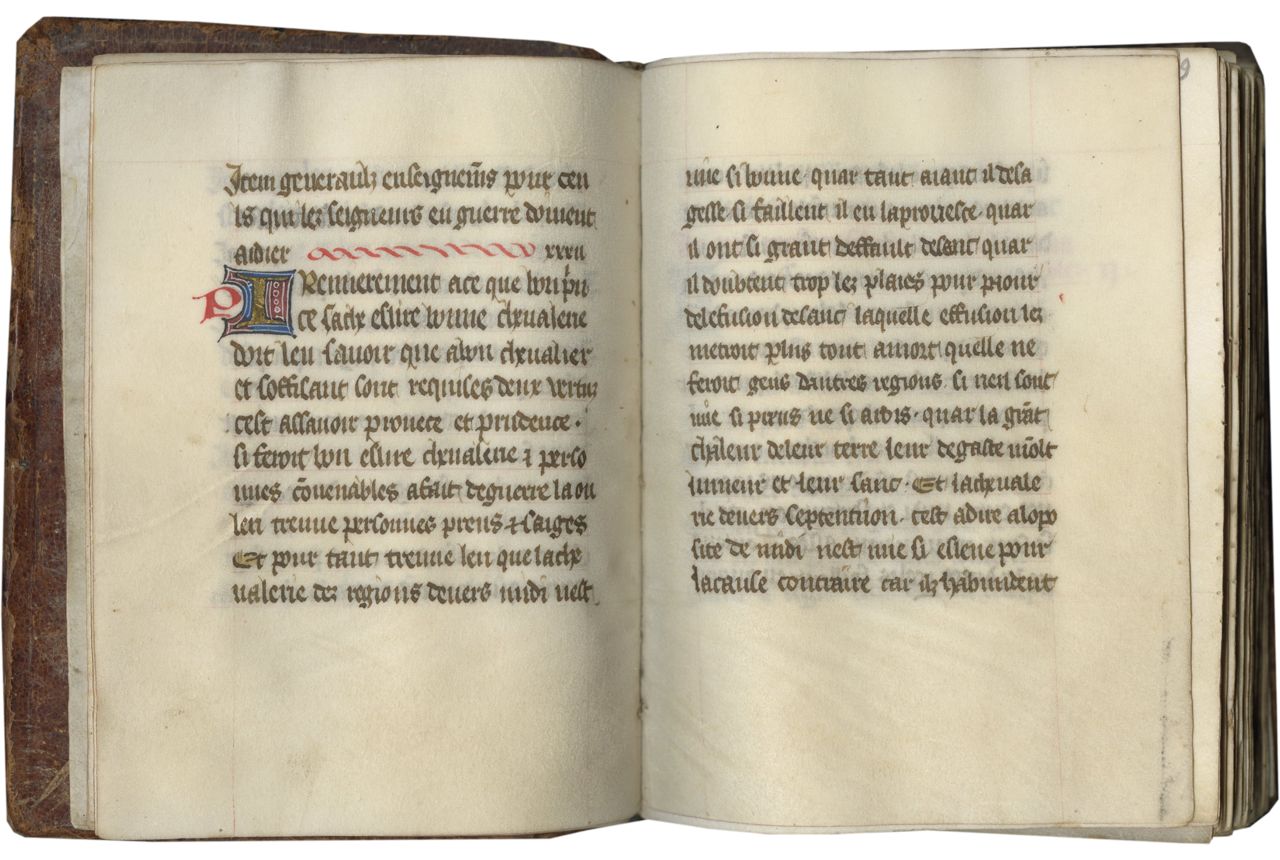 Item generaulz enseignem̄s pour ceu
ls qui lez seigneurs en guerre doiuent
aidier xxxii
P Premierement ace que lon p̄n
ce sache eslire bonne cheualerie
doit len sauoir que abon cheualier
et soffisant sont requises deux vertus
cest assauoir prouece et prudence .
si feroit bon eslire cheualerie ⁊ perso
nnes cōuenables afait deguerre la ou
len treuue personnes preus ⁊ saiges
Et pour tant treuue len que lache
ualerie dez regions deuers midi nest
mie si bonne · quar tant aiant il desa
gesse si faillent il en laprouesce · quar
il ont si grant deffault desant quar
il doubtent trop lez plaies pour pieur
delefusion desanc laquelle effusion lez
metroit plus tout amort quelle ne
feroit gens dautres regions . si nen sont
mie si preus ne si ardis · quar la grāt
chaleur deleur terre leur degaste mōlt
lumeur et leur sanc · Et lacheuale
rie deuers septentrion . cest adire alopo
site de midi nest mie si esleue pour
lacause contraire car ilz habundent
9